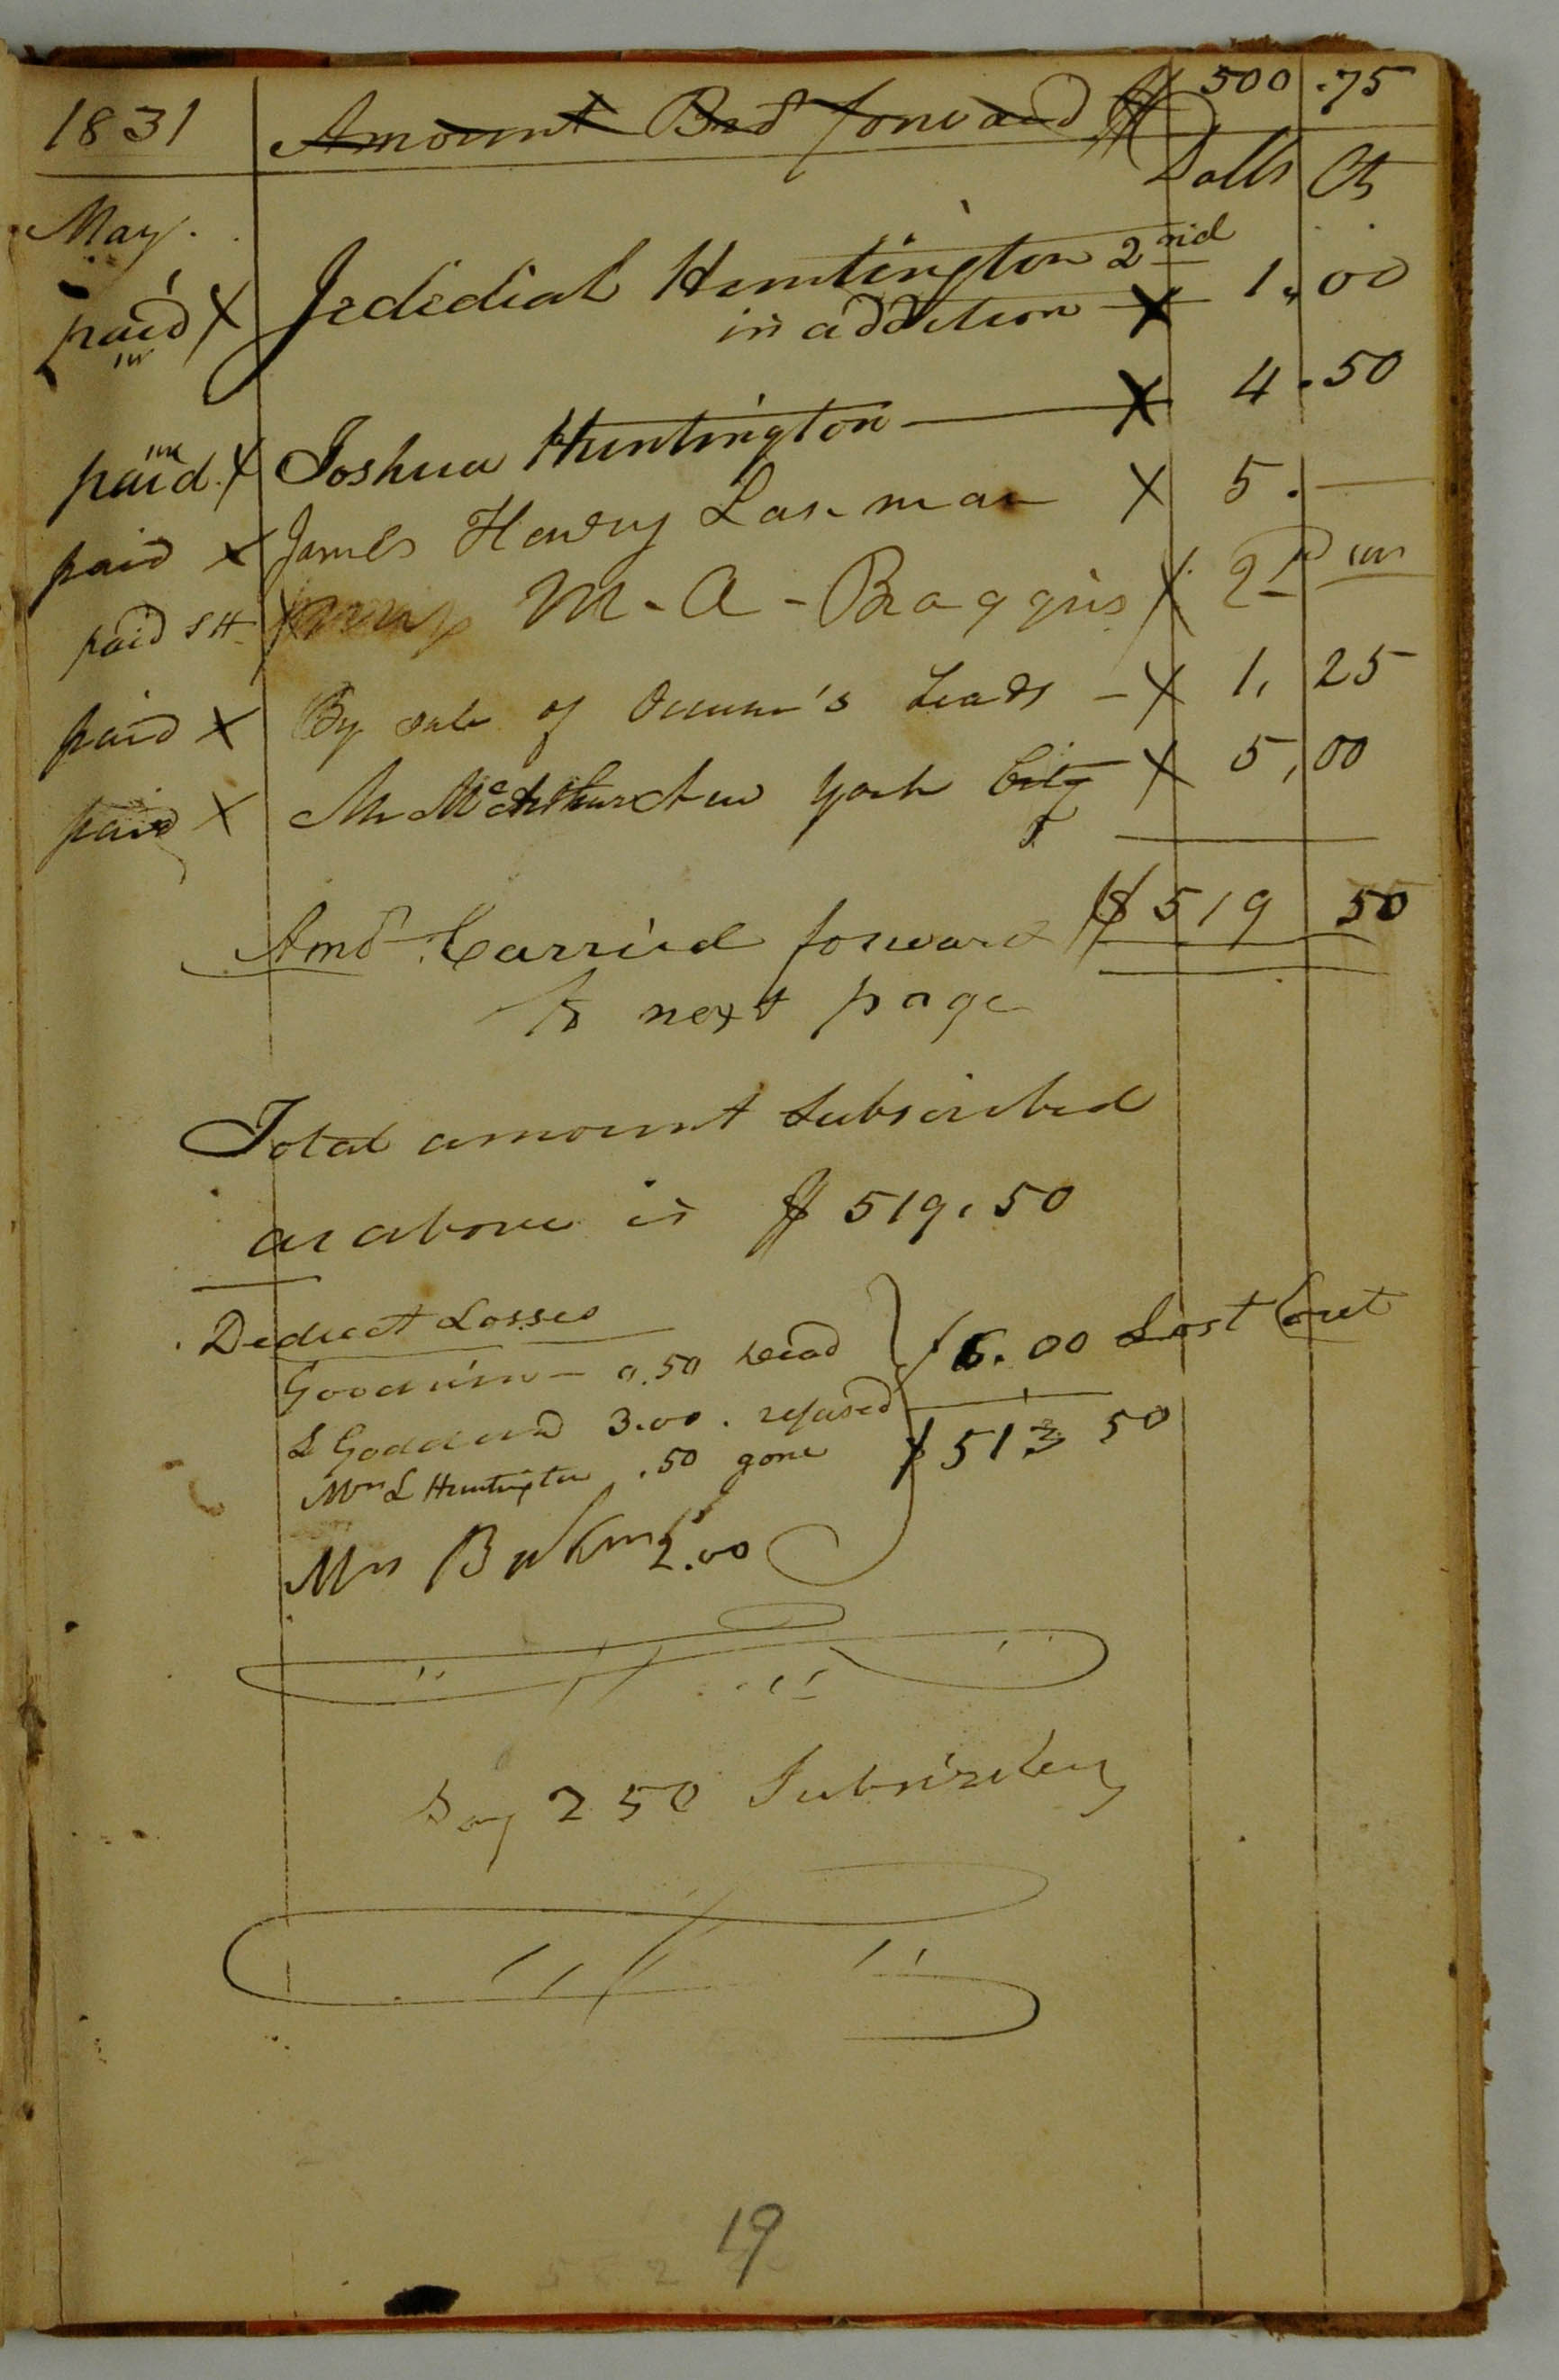 1831 Amount Brd forward $ 500 .75
Dolls Cts
May.
paid X Jedediah Huntington 2nd
in addition X 1.00
paid X Joshua Huntington X 4.50
paid X James Henry Lanman X 5.—
paid SH X M-A-Boggis X 2
paid X By sale of Occum's Leads - X 1,25
paid X Mr McArthur New York City X 5,00
Amd Carried forward $ 519 50
To next page
Total amount Subscribed
as above is $ 519.50
Deduct Losses
Goodwin - 0.50 Dead
L Goddard 3.00. refused
Mrs L Huntington .50 gone
Mrs 2.00
$6.00 Lost Cout
$513 50
Say 250 Subscribers
19